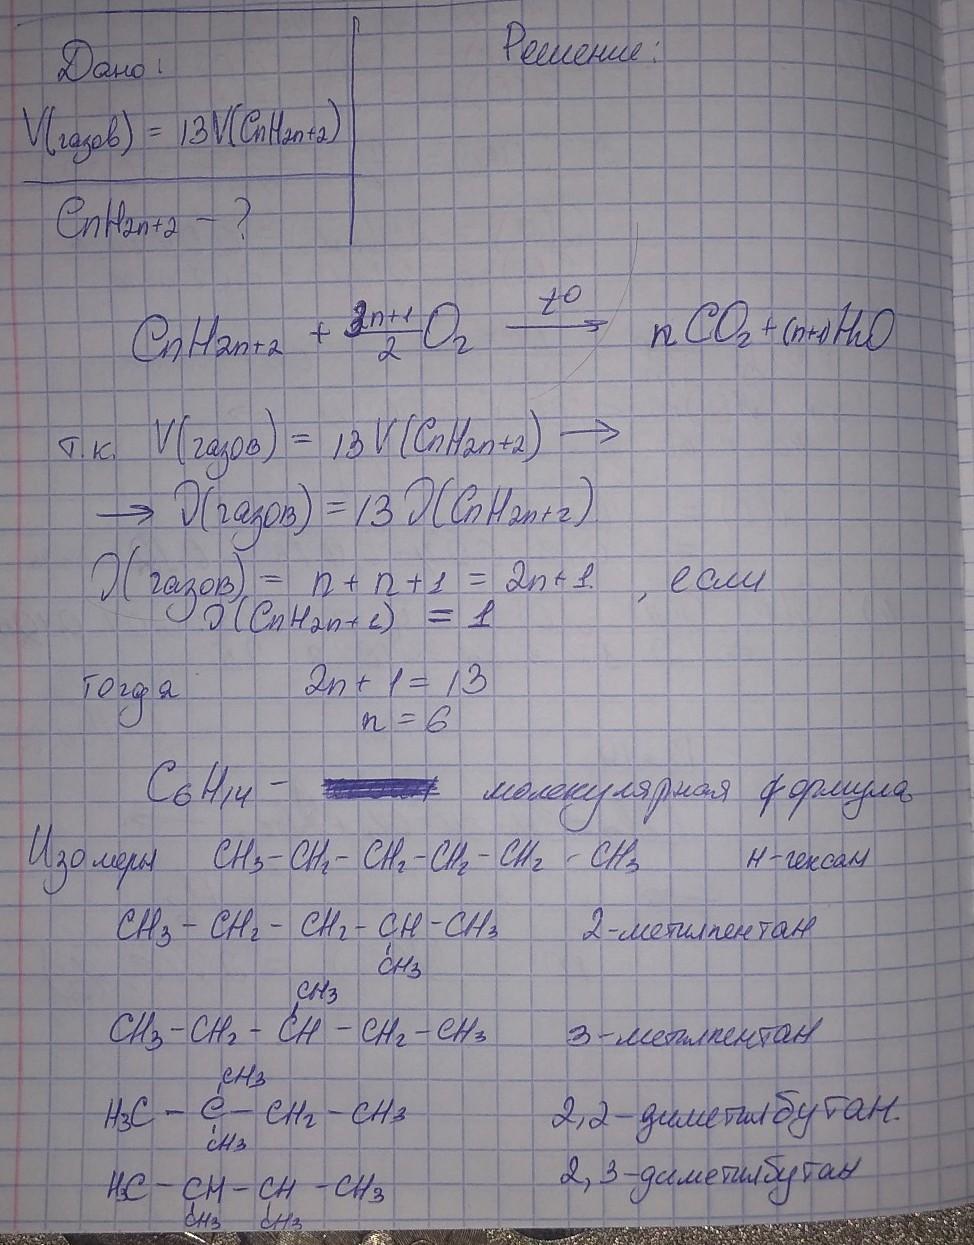 Дано:
Решение:
V(газов) = 13V(CnH2n+2)
CnH2n+2 – ?
CnH2n+2 + 3n+1/2 O2 t0→ nCO2 + (n+1)H2O
т.к. V(газов) = 13V(CnH2n+2) →
→ ϑ(газов) = 13 ϑ(CnH2n+2)
ϑ(газов) = n + n + 1 = 2n+1 , если
ϑ(CnH2n+2) = 1
тогда 2n + 1 = 13
n = 6
C6H14 – молекулярная формула
Изомеры CH3 – CH2 – CH2 – CH2 – CH2 – CH3 н-гексан
CH3 – CH2 – CH2 – CH – CH3 2-метилпентан
CH3
CH3
CH3 – CH2 – CH – CH2 – CH3 3-метилпентан
CH3
H3C – C – CH2 – CH3 2,2-диметилбутан.
CH3
H3C – CH – CH – CH3 2,3-диметилбутан
CH3 CH3